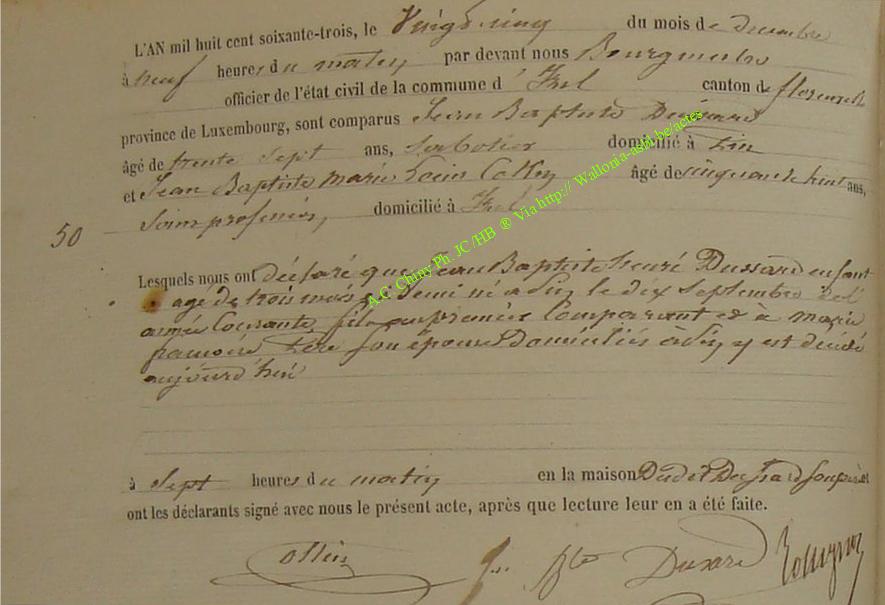 L'AN mil huit cent soixante-trois, le Vingt cinq du mois de decembre
à neuf heures du matin, par devant nous Bourgmestre
officier de l'état civil de la commune d' Izel canton de florenville
province de Luxembourg, sont comparus Jean Baptiste Dussard
âgé de trente Sept ans, Sabotier domicilié à
et Jean Baptiste marie Louis âgé de cinquante huit ans,
Sans profession, domicilié à Izel
50
Lesquels nous ont déclaré que Jean Baptiste henri Dussard enfant
agé de trois mois & demi né à le dix Septembre de l'
année Courante, fils du premier Comparant et de marie
son épouse Domiciliés à y est décédé
aujourd'hui
à Sept heures du matin en la maison Dudit Dussard Son père et
ont les déclarants signé avec nous le présent acte, après que lecture leur en a été faite.
J. Bte Dussard
A.C. Chiny Ph. JC /HB ® Via http:// Wallonia-asbl.be/actes